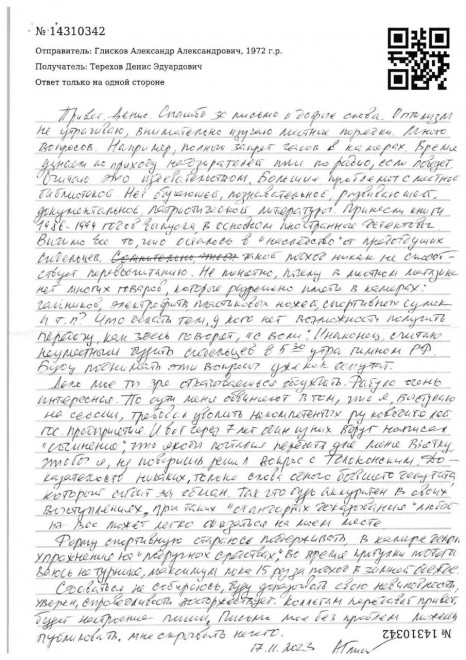 № 14310342
Отправитель: Глисков Александр Александрович, 1972 г.р.
Получатель: Терехов Денис Эдуардович
Ответ только на одной стороне
Привет, Денис. Спасибо за письмо и добрые слова. Оптимизм
не утрачиваю, внимательно изучаю местные порядки. Много
вопросов. Например, полный запрет часов в камерах. Время
узнаем по приходу надзирателей или по радио, если повезет.
Считаю это издевательством. Большие проблемы с местной
библиотекой. Нет обучающей, познавательной, развивающей,
документальной, патриотической литературы! Принесли книги
1986-1994 годов выпуска, в основном иностранные детективы.
Видимо все то, что осталось в "наследство" от предыдущих
сидельцев. такой подход никак не способ-
ствует перевоспитанию. Не понятно, почему в местном магазине
нет многих товаров, которые разрешено иметь в камерах:
кипятильников, электробритв, пластиковых ножей, спортивных сумок
и т.п.? Что делать тем, у кого нет возможность получить
передачу, как здесь говорят, "с воли". И наконец, считаю
неуместным будить сидельцев в 5 30 утра гимном РФ.
Буду поднимать эти вопросы уже как депутат.
Дело мое ты зря отказываешься обсуждать. Фабула очень
интересная. По сути меня обвиняют в том, что я, выступая
на сессии, требовал уволить некомпетентных руководителей
гос. предприятия. И вот через 7 лет один из них вдруг написал
"сочинение", что якобы пытался передать для меня взятку,
чтобы я, не поверишь, решил вопрос с Толоконским. До-
казательств никаких, только слова одного бывшего депутата,
который сидит за обман. Так что будь аккуратен в своих
выступлениях, при таких "стандартах доказывания" любой
из вас может легко оказаться на моем месте.
Форму спортивную стараюсь поддерживать. В камере делаю
упражнения на "подручных средствах", во время прогулки подтяги-
ваюсь на турнике, максимум пока 15 раз за подход в зимней одежде.
Сдаваться не собираюсь, буду доказывать свою невиновность,
уверен, справедливость восторжествует. Коллегам передавай привет,
будет настроение пиши. Письма мои без проблем можешь
публиковать, мне скрывать нечего.
17.11.2023
№ 14310342